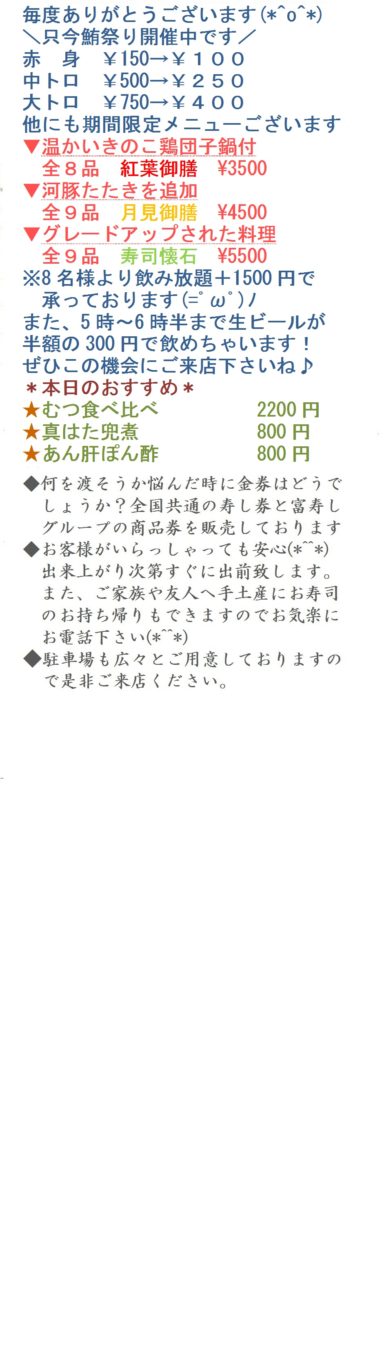 毎度ありがとうございます(*^o^*)
＼只今鮪祭り開催中です／
赤　身　￥150→￥１００
中トロ　￥500→￥２５０
大トロ　￥750→￥４００
他にも期間限定メニューございます
▼温かいきのこ鶏団子鍋付
全８品　紅葉御膳　¥3500
▼河豚たたきを追加
全９品　月見御膳　¥4500
▼グレードアップされた料理
全９品　寿司懐石　¥5500
※8名様より飲み放題＋1500円で
承っております(=ﾟωﾟ)ﾉ
また、5時～6時半まで生ビールが
半額の300円で飲めちゃいます！
ぜひこの機会にご来店下さいね♪
＊本日のおすすめ＊
★むつ食べ比べ　2200円
★真はた兜煮　800円
★あん肝ぽん酢　800円
◆何を渡そうか悩んだ時に金券はどうで
しょうか？全国共通の寿し券と富寿し
グループの商品券を販売しております
◆お客様がいらっしゃっても安心(*^^*)
出来上がり次第すぐに出前致します。
また、ご家族や友人へ手土産にお寿司
のお持ち帰りもできますのでお気楽に
お電話下さい(*^^*)
◆駐車場も広々とご用意しておりますの
で是非ご来店ください。